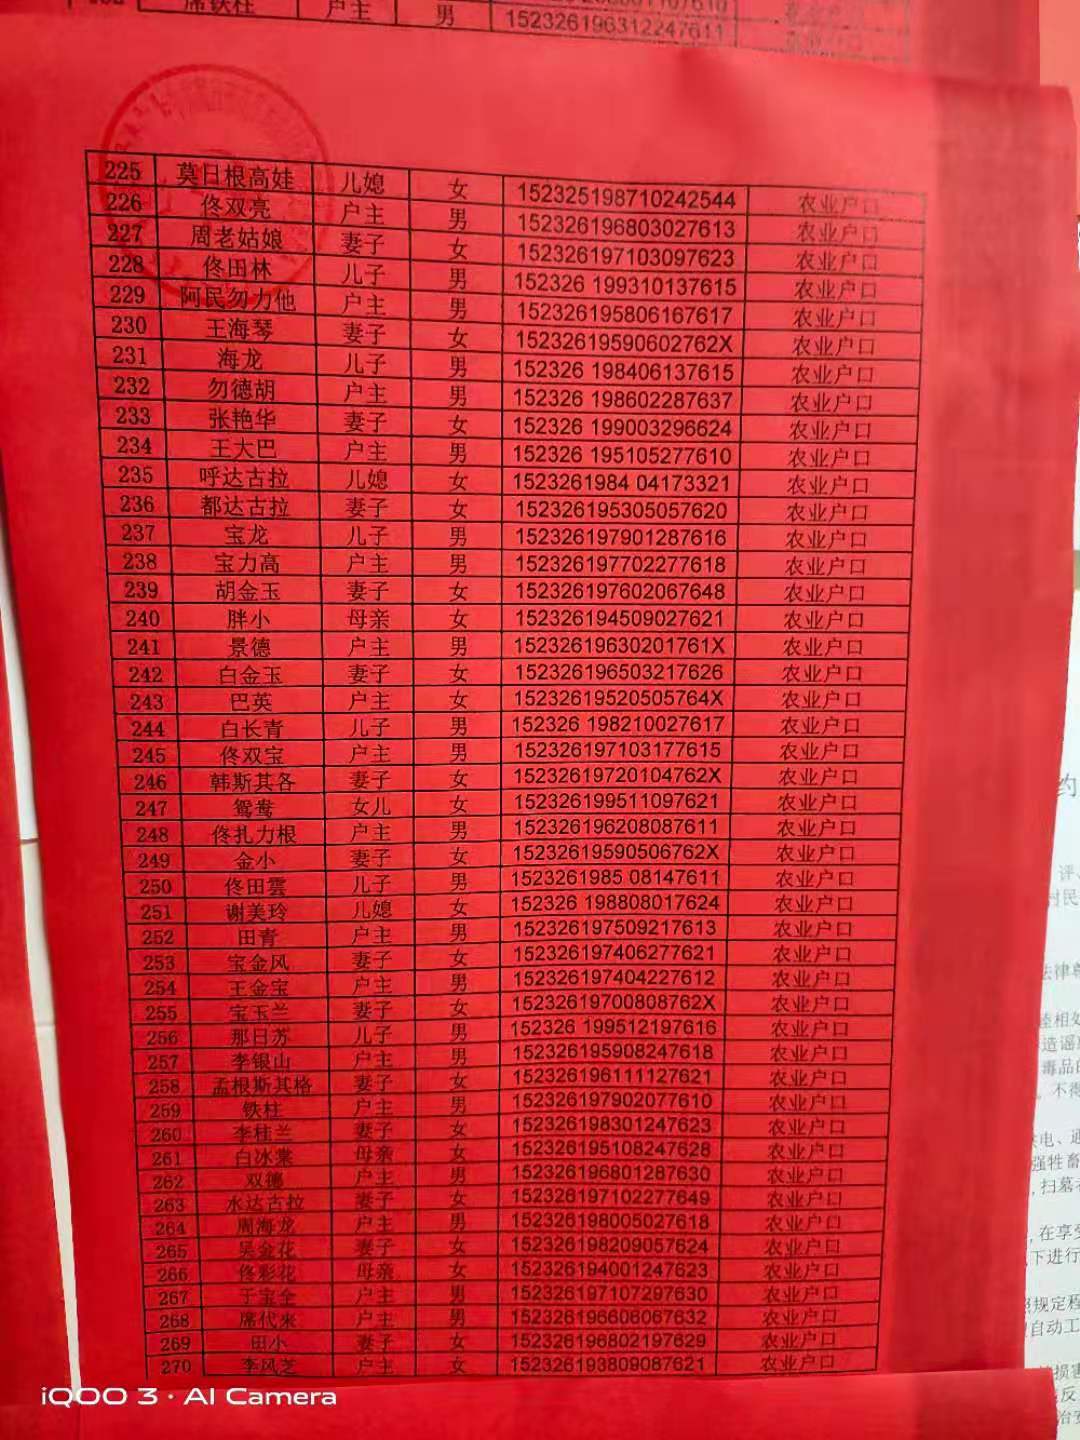 席铁柱 户主 男 152326196312247611
225 莫日根高娃 儿媳 女 152325198710242544 农业户口
226 佟双亮 户主 男 152326196803027613 农业户口
227 周老姑娘 妻子 女 152326197103097623 农业户口
228 佟田林 儿子 男 152326 199310137615 农业户口
229 阿民勿力他 户主 男 152326195806167617 农业户口
230 王海琴 妻子 女 15232619590602762X 农业户口
231 海龙 儿子 男 152326 198406137615 农业户口
232 勿德胡 户主 男 152326 198602287637 农业户口
233 张艳华 妻子 女 152326 199003296624 农业户口
234 王大巴 户主 男 152326 195105277610 农业户口
235 呼达古拉 儿媳 女 1523261984 04173321 农业户口
236 都达古拉 妻子 女 152326195305057620 农业户口
237 宝龙 儿子 男 152326197901287616 农业户口
238 宝力高 户主 男 152326197702277618 农业户口
239 胡金玉 妻子 女 152326197602067648 农业户口
240 胖小 母亲 女 152326194509027621 农业户口
241 景德 户主 男 15232619630201761X 农业户口
242 白金玉 妻子 女 152326196503217626 农业户口
243 巴英 户主 女 15232619520505764X 农业户口
244 白长青 儿子 男 152326 198210027617 农业户口
245 佟双宝 户主 男 152326197103177615 农业户口
246 韩斯其各 妻子 女 15232619720104762X 农业户口
247 鸳鸯 女儿 女 152326199511097621 农业户口
248 佟扎力根 户主 男 152326196208087611 农业户口
249 金小 妻子 女 15232619590506762X 农业户口
250 佟田雲 儿子 男 1523261985 08147611 农业户口
251 谢美玲 儿媳 女 152326 198808017624 农业户口
252 田青 户主 男 152326197509217613 农业户口
253 宝金风 妻子 女 152326197406277621 农业户口
254 王金宝 户主 男 152326197404227612 农业户口
255 宝玉兰 妻子 女 15232619700808762X 农业户口
256 那日苏 儿子 男 152326 199512197616 农业户口
257 李银山 户主 男 152326195908247618 农业户口
258 孟根斯其格 妻子 女 152326196111127621 农业户口
259 铁柱 户主 男 152326197902077610 农业户口
260 李桂兰 妻子 女 152326198301247623 农业户口
261 白冰棠 母亲 女 152326195108247628 农业户口
262 双德 户主 男 152326196801287630 农业户口
263 水达古拉 妻子 女 152326197102277649 农业户口
264 周海龙 户主 男 152326198005027618 农业户口
265 吴金花 妻子 女 152326198209057624 农业户口
266 佟彩花 母亲 女 152326194001247623 农业户口
267 于宝全 户主 男 152326197107297630 农业户口
268 席代来 户主 男 152326196606067632 农业户口
269 田小 妻子 女 152326196802197629 农业户口
270 李风芝 户主 女 152326193809087621 农业户口
iQOO 3 · AI Camera
约
评、
村民
法律尊
造谣
毒品
不得
电、通
强牲畜
扫墓
在享受
下进行
规定程
自动工
损害
反
治安